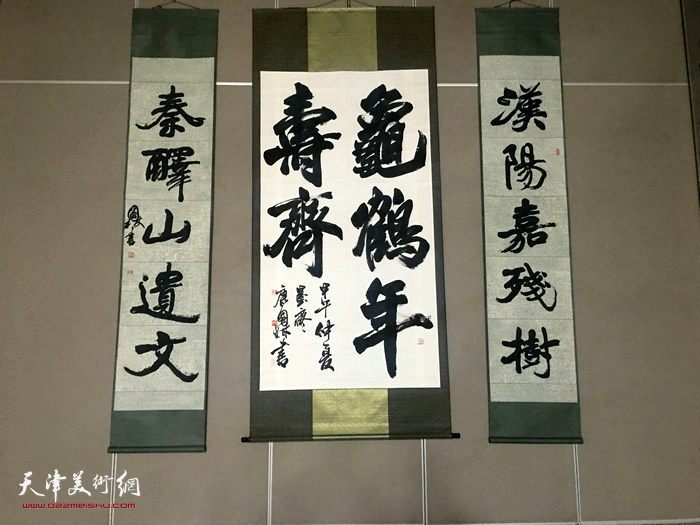 漢陽嘉殘樹
龜鶴年
壽齊
甲午仲夏
唐恩
秦嶧山遺文
天津美術網
www.022meishu.com